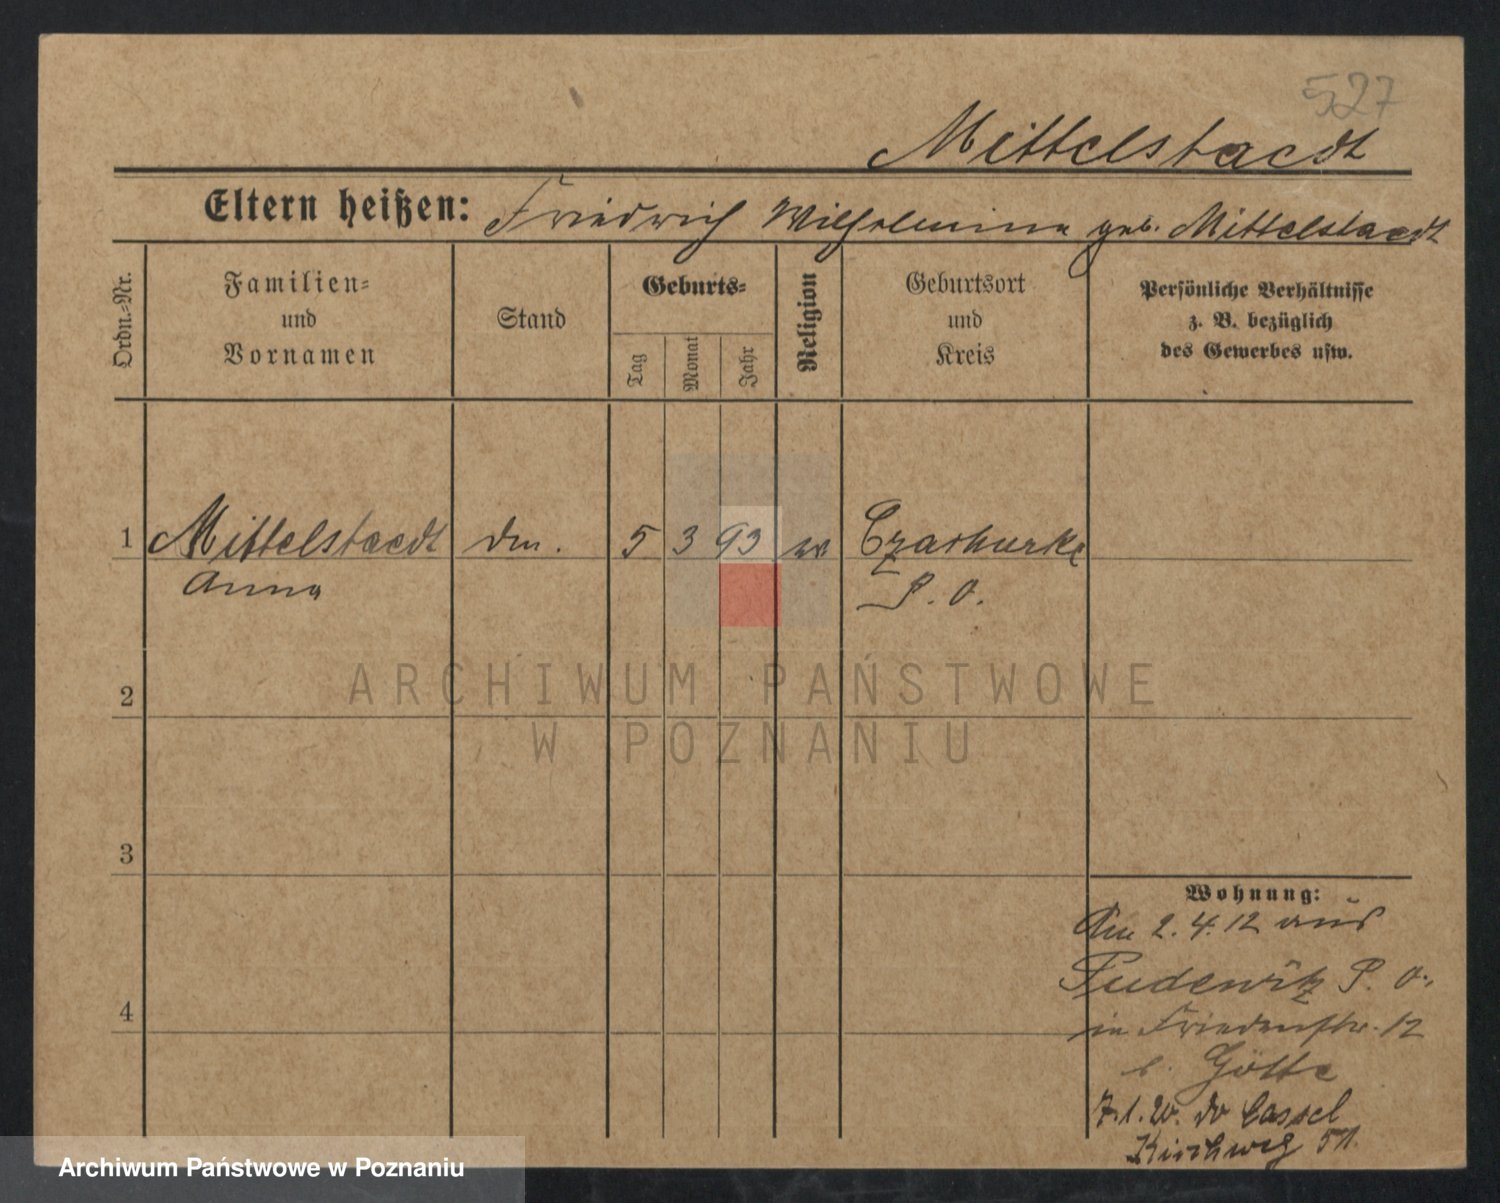 527
Mittelstaedt
Eltern heißen: Friedrich Wilhelmine geb. Mittelstaedt
Ordn.-Nr.
Familien-
und
Vornamen
Stand
Geburts-
Tag
Monat
Jahr
Religion
Geburtsort
und
Kreis
Persönliche Verhältnisse
z. B. bezüglich
des Gewerbes usw.
1 Mittelstaedt 5 3 93
Anna
P. O.
ARCHIWUM PAŃSTWOWE
W POZNANIU
2
3
4
Wohnung:
Am 2. 4. 12 aus
Pudewitz P. O.
in Friedenstr. 12
b. Götte
7.1.20. Cassel
Kirchweg 51.
Archiwum Państwowe w Poznaniu